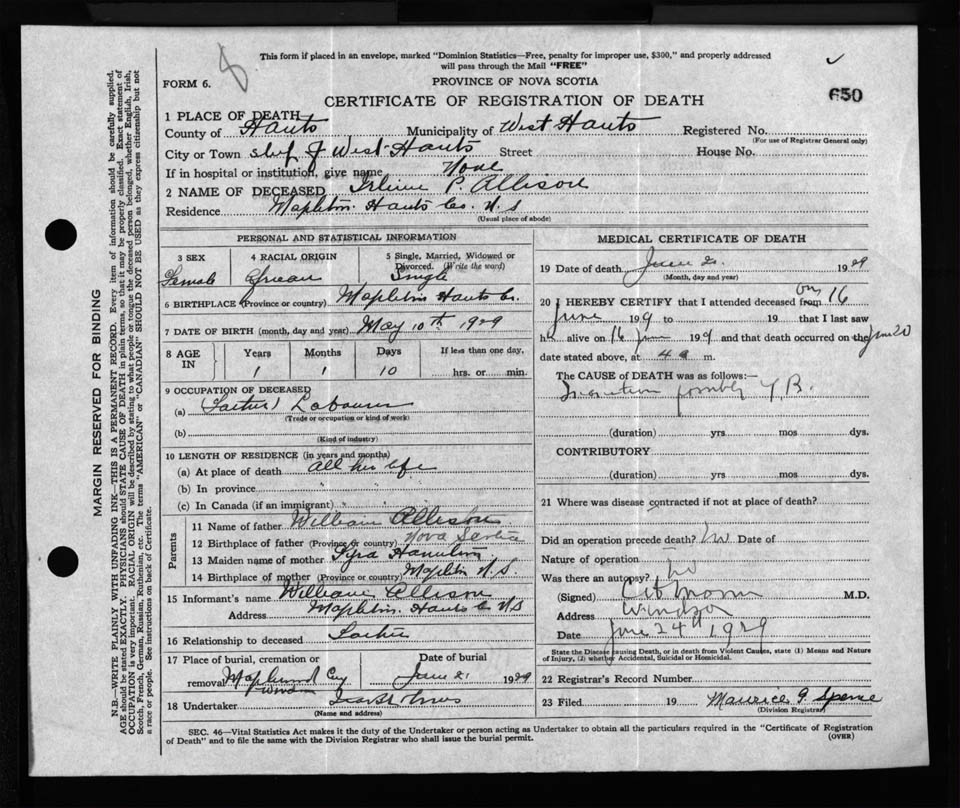 This form if placed in an envelope, marked "Dominion Statistics—Free, penalty for improper use, $300," and properly addressed
will pass through the Mail "FREE"
FORM 6. 8
PROVINCE OF NOVA SCOTIA
650
CERTIFICATE OF REGISTRATION OF DEATH
1 PLACE OF DEATH
County of Hants Municipality of West Hants Registered No.
(For use of Registrar General only)
City or Town West Hants Street House No.
If in hospital or institution, give name None
2 NAME OF DECEASED P. Allison
Residence Mapleton Hants Co. N.S
(Usual place of abode)
PERSONAL AND STATISTICAL INFORMATION
3 SEX 4 RACIAL ORIGIN 5 Single, Married, Widowed or
Divorced. (Write the word)
Female Single
6 BIRTHPLACE (Province or country) Mapleton Hants Co.
7 DATE OF BIRTH (month, day and year) May 10th 1929
8 AGE IN Years Months Days If less than one day,
1 1 10 hrs. or min.
9 OCCUPATION OF DECEASED
(a) (Father) Labourer
(Trade or occupation or kind of work)
(b)
(Kind of industry)
10 LENGTH OF RESIDENCE (in years and months)
(a) At place of death all her life
(b) In province
(c) In Canada (if an immigrant)
Parents
11 Name of father William Allison
12 Birthplace of father (Province or country) Nova Scotia
13 Maiden name of mother
14 Birthplace of mother (Province or country) Mapleton N.S.
15 Informant's name William Allison
Address Mapleton Hants Co N.S
16 Relationship to deceased Father
17 Place of burial, cremation or Date of burial
removal June 21 1929
18 Undertaker
(Name and address)
MEDICAL CERTIFICATE OF DEATH
19 Date of death June 20 1929
(Month, day and year)
20 I HEREBY CERTIFY that I attended deceased from on 16
June 1929 to 19 that I last saw
h alive on 16 June 1929 and that death occurred on the June 20
date stated above, at 4 a m.
The CAUSE OF DEATH was as follows:—
possibly T.B.
(duration) yrs mos dys.
CONTRIBUTORY
(duration) yrs mos dys.
21 Where was disease contracted if not at place of death?
Did an operation precede death? No Date of
Nature of operation
Was there an autopsy? no
(Signed) M.D.
Address Windsor
Date June 24th 1929
State the Disease causing Death, or in death from Violent Causes, state (1) Means and Nature
of Injury, (2) whether Accidental, Suicidal or Homicidal.
22 Registrar's Record Number
23 Filed 19 Maurice G. Spence
(Division Registrar)
SEC. 46—Vital Statistics Act makes it the duty of the Undertaker or person acting as Undertaker to obtain all the particulars required in the "Certificate of Registration
of Death" and to file the same with the Division Registrar who shall issue the burial permit. (OVER)
MARGIN RESERVED FOR BINDING
N.B.—WRITE PLAINLY WITH UNFADING INK—THIS IS A PERMANENT RECORD. Every item of information should be carefully supplied.
AGE should be stated EXACTLY. PHYSICIANS should STATE CAUSE OF DEATH in plain terms, so that it may be properly classified. Exact statement of
OCCUPATION is very important. RACIAL ORIGIN will be described by stating to what people or tongue the deceased person belonged, whether English, Irish,
Scotch, French, German, Russian, Ruthenian, etc. The terms "AMERICAN" or "CANADIAN" SHOULD NOT BE USED as they express citizenship but not
a race or people. See instructions on back of Certificate.